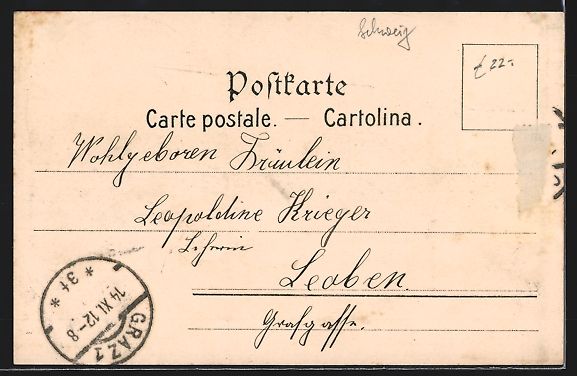 Schweiz
€ 22.-
Postkarte
Carte postale. — Cartolina.
Wohlgeboren Fräulein
Leopoldine Krieger
Lehrerin
Leoben.
Grafgasse.
* 3t *
14 XI. 12-8
GRAZ 1